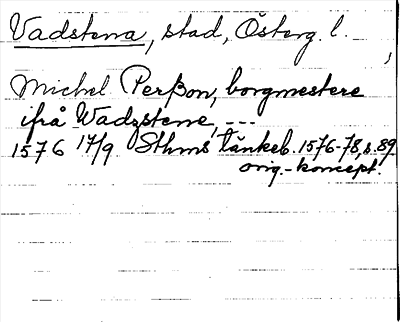 Vadstena, stad, Österg. l.
Michel Perßon, borgmestere
ifrå Wadzstene, ---
1576 17/9 Sthms tänkeb. 1576-78, s. 89.
orig.-koncept.